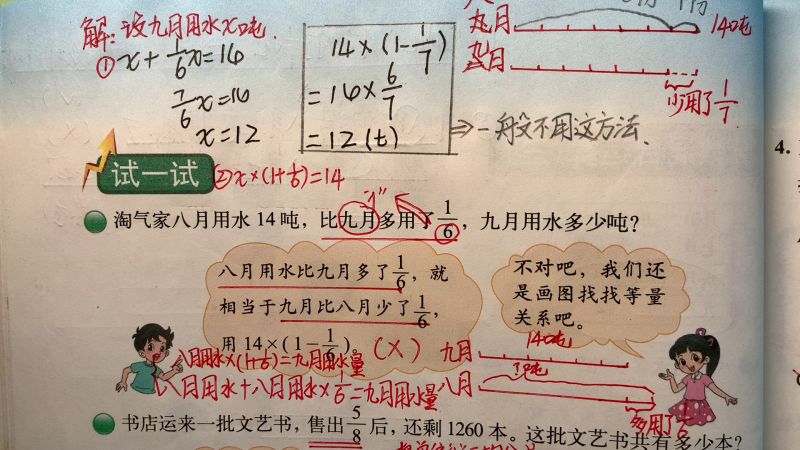 解：设九月用水x吨.
①x+1/6x=16
7/6x=16
x=12
14×(1-1/7)
=16×6/7
=12(t)
⇒一般不用这方法.
九月
140吨
少用了1/7
试一试
②x×(1+1/6)=14
"1"
淘气家八月用水14吨，比九月多用了1/6，九月用水多少吨？
八月用水比九月多了1/6，就
相当于九月比八月少了1/6，
用14×(1-1/6)。
(×)
不对吧，我们还
是画图找找等量
关系吧。
八月用水×(1+1/6)=九月用水量
八月用水+八月用水×1/6=九月用水量
九月
140吨
八月
?吨
多用了1/6
书店运来一批文艺书，售出5/8后，还剩1260本。这批文艺书共有多少本？
4.